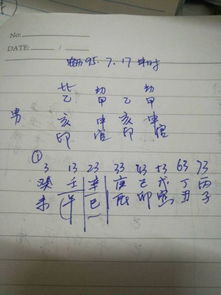 No:
DATE:
95.7.17 申时
比 劫 劫
乙 甲 乙 甲
男 亥 申 亥 申
印 印
①
3 13 23 33 43 53 63 73
癸 壬 辛 庚 己 戊 丁 丙
未 午 巳 辰 卯 寅 丑 子